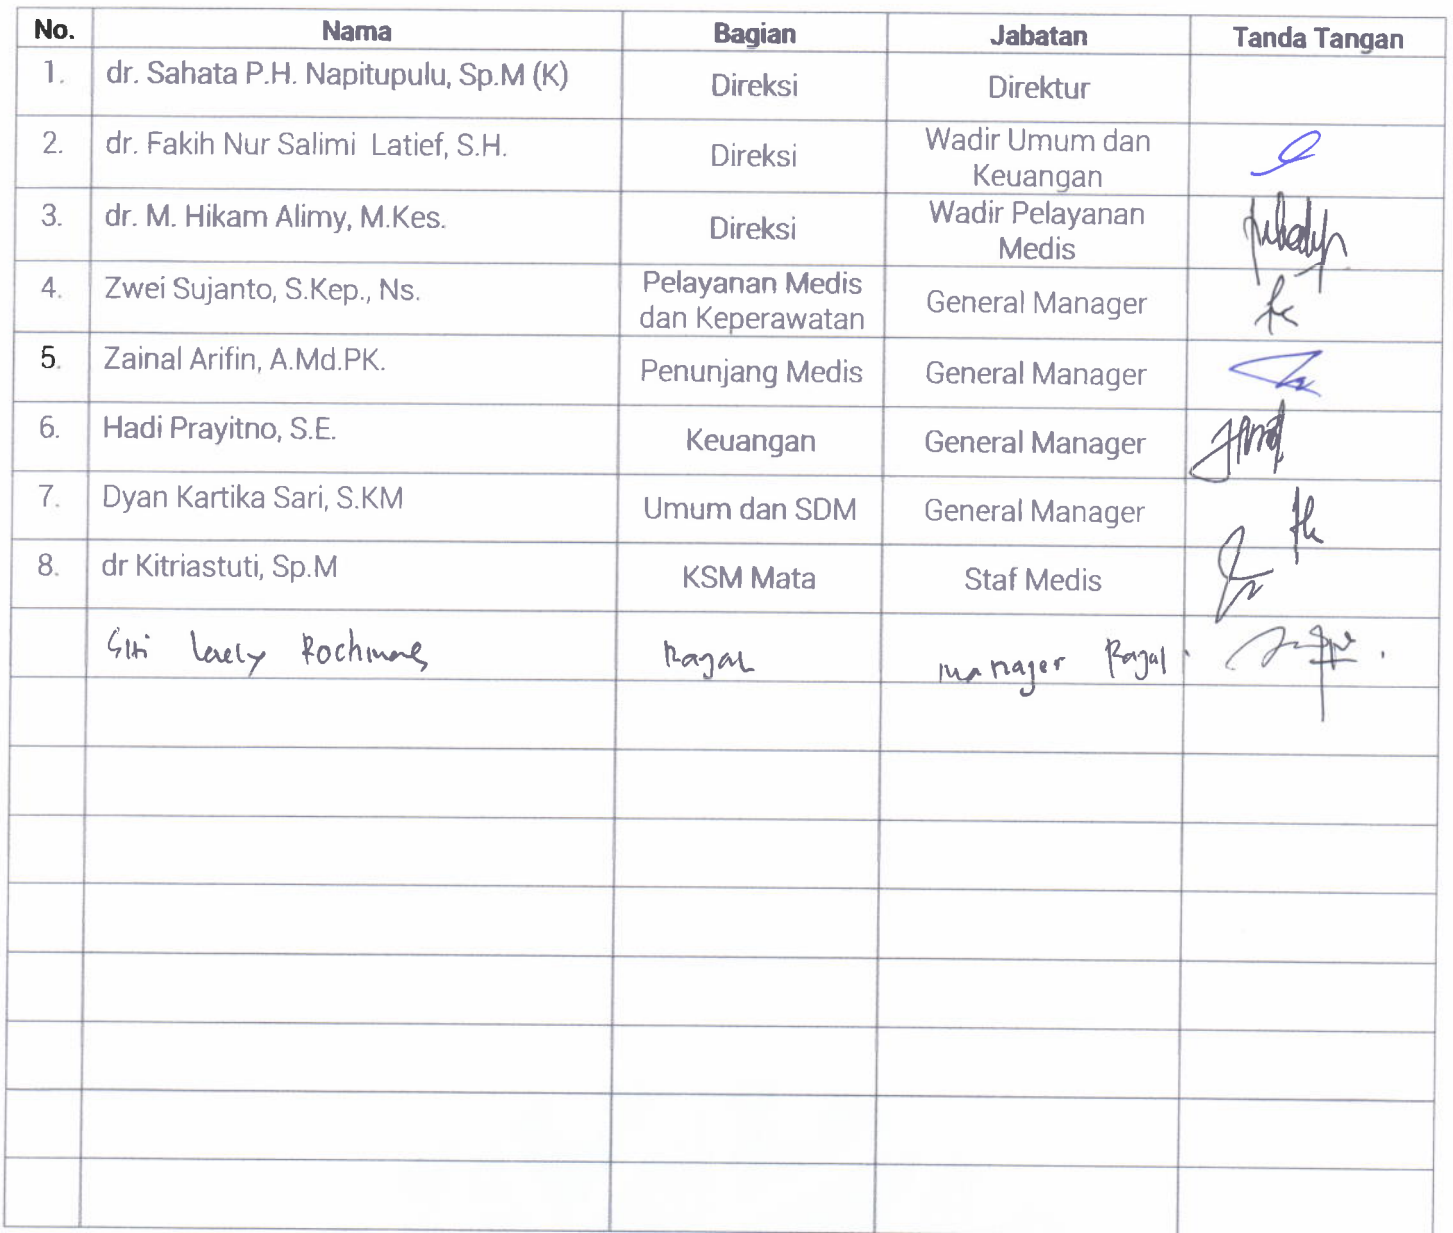 No. Nama Bagian Jabatan Tanda Tangan
1. dr. Sahata P.H. Napitupulu, Sp.M (K) Direksi Direktur
2. dr. Fakih Nur Salimi Latief, S.H. Direksi Wadir Umum dan
Keuangan
3. dr. M. Hikam Alimy, M.Kes. Direksi Wadir Pelayanan
Medis
4. Zwei Sujanto, S.Kep., Ns. Pelayanan Medis
dan Keperawatan General Manager
5. Zainal Arifin, A.Md.PK. Penunjang Medis General Manager
6. Hadi Prayitno, S.E. Keuangan General Manager
7. Dyan Kartika Sari, S.KM Umum dan SDM General Manager
8. dr Kitriastuti, Sp.M KSM Mata Staf Medis
Siti Laely Rajal manager Rajal